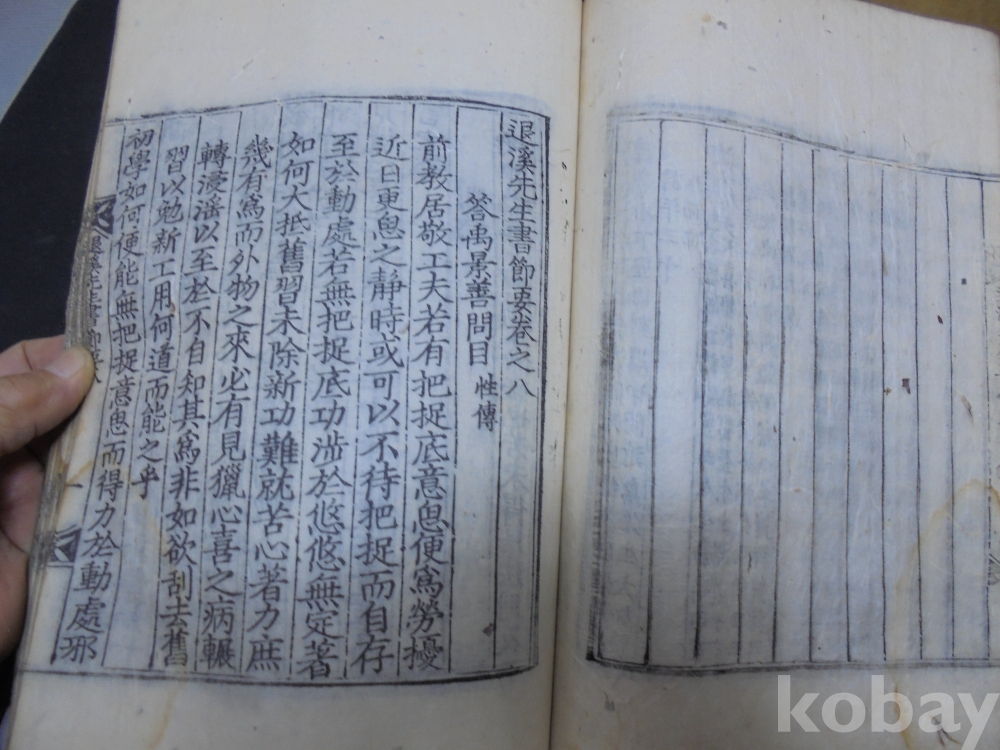 退溪先生書節要卷之八
答禹景善問目 性傳
前教居敬工夫若有把捉底意思便爲勞擾
近日更思之靜時或可以不待把捉而自存
至於動處若無把捉底功涉於悠悠無定著
如何大抵舊習未除新功難就苦心著力庶
幾有爲而外物之來必有見獵心喜之病輾
轉浸滛以至於不自知其爲非如欲刮去舊
習以勉新工用何道而能之乎
初學如何便能無把捉意思而得力於動處邪
退溪先生書節要八
kobay